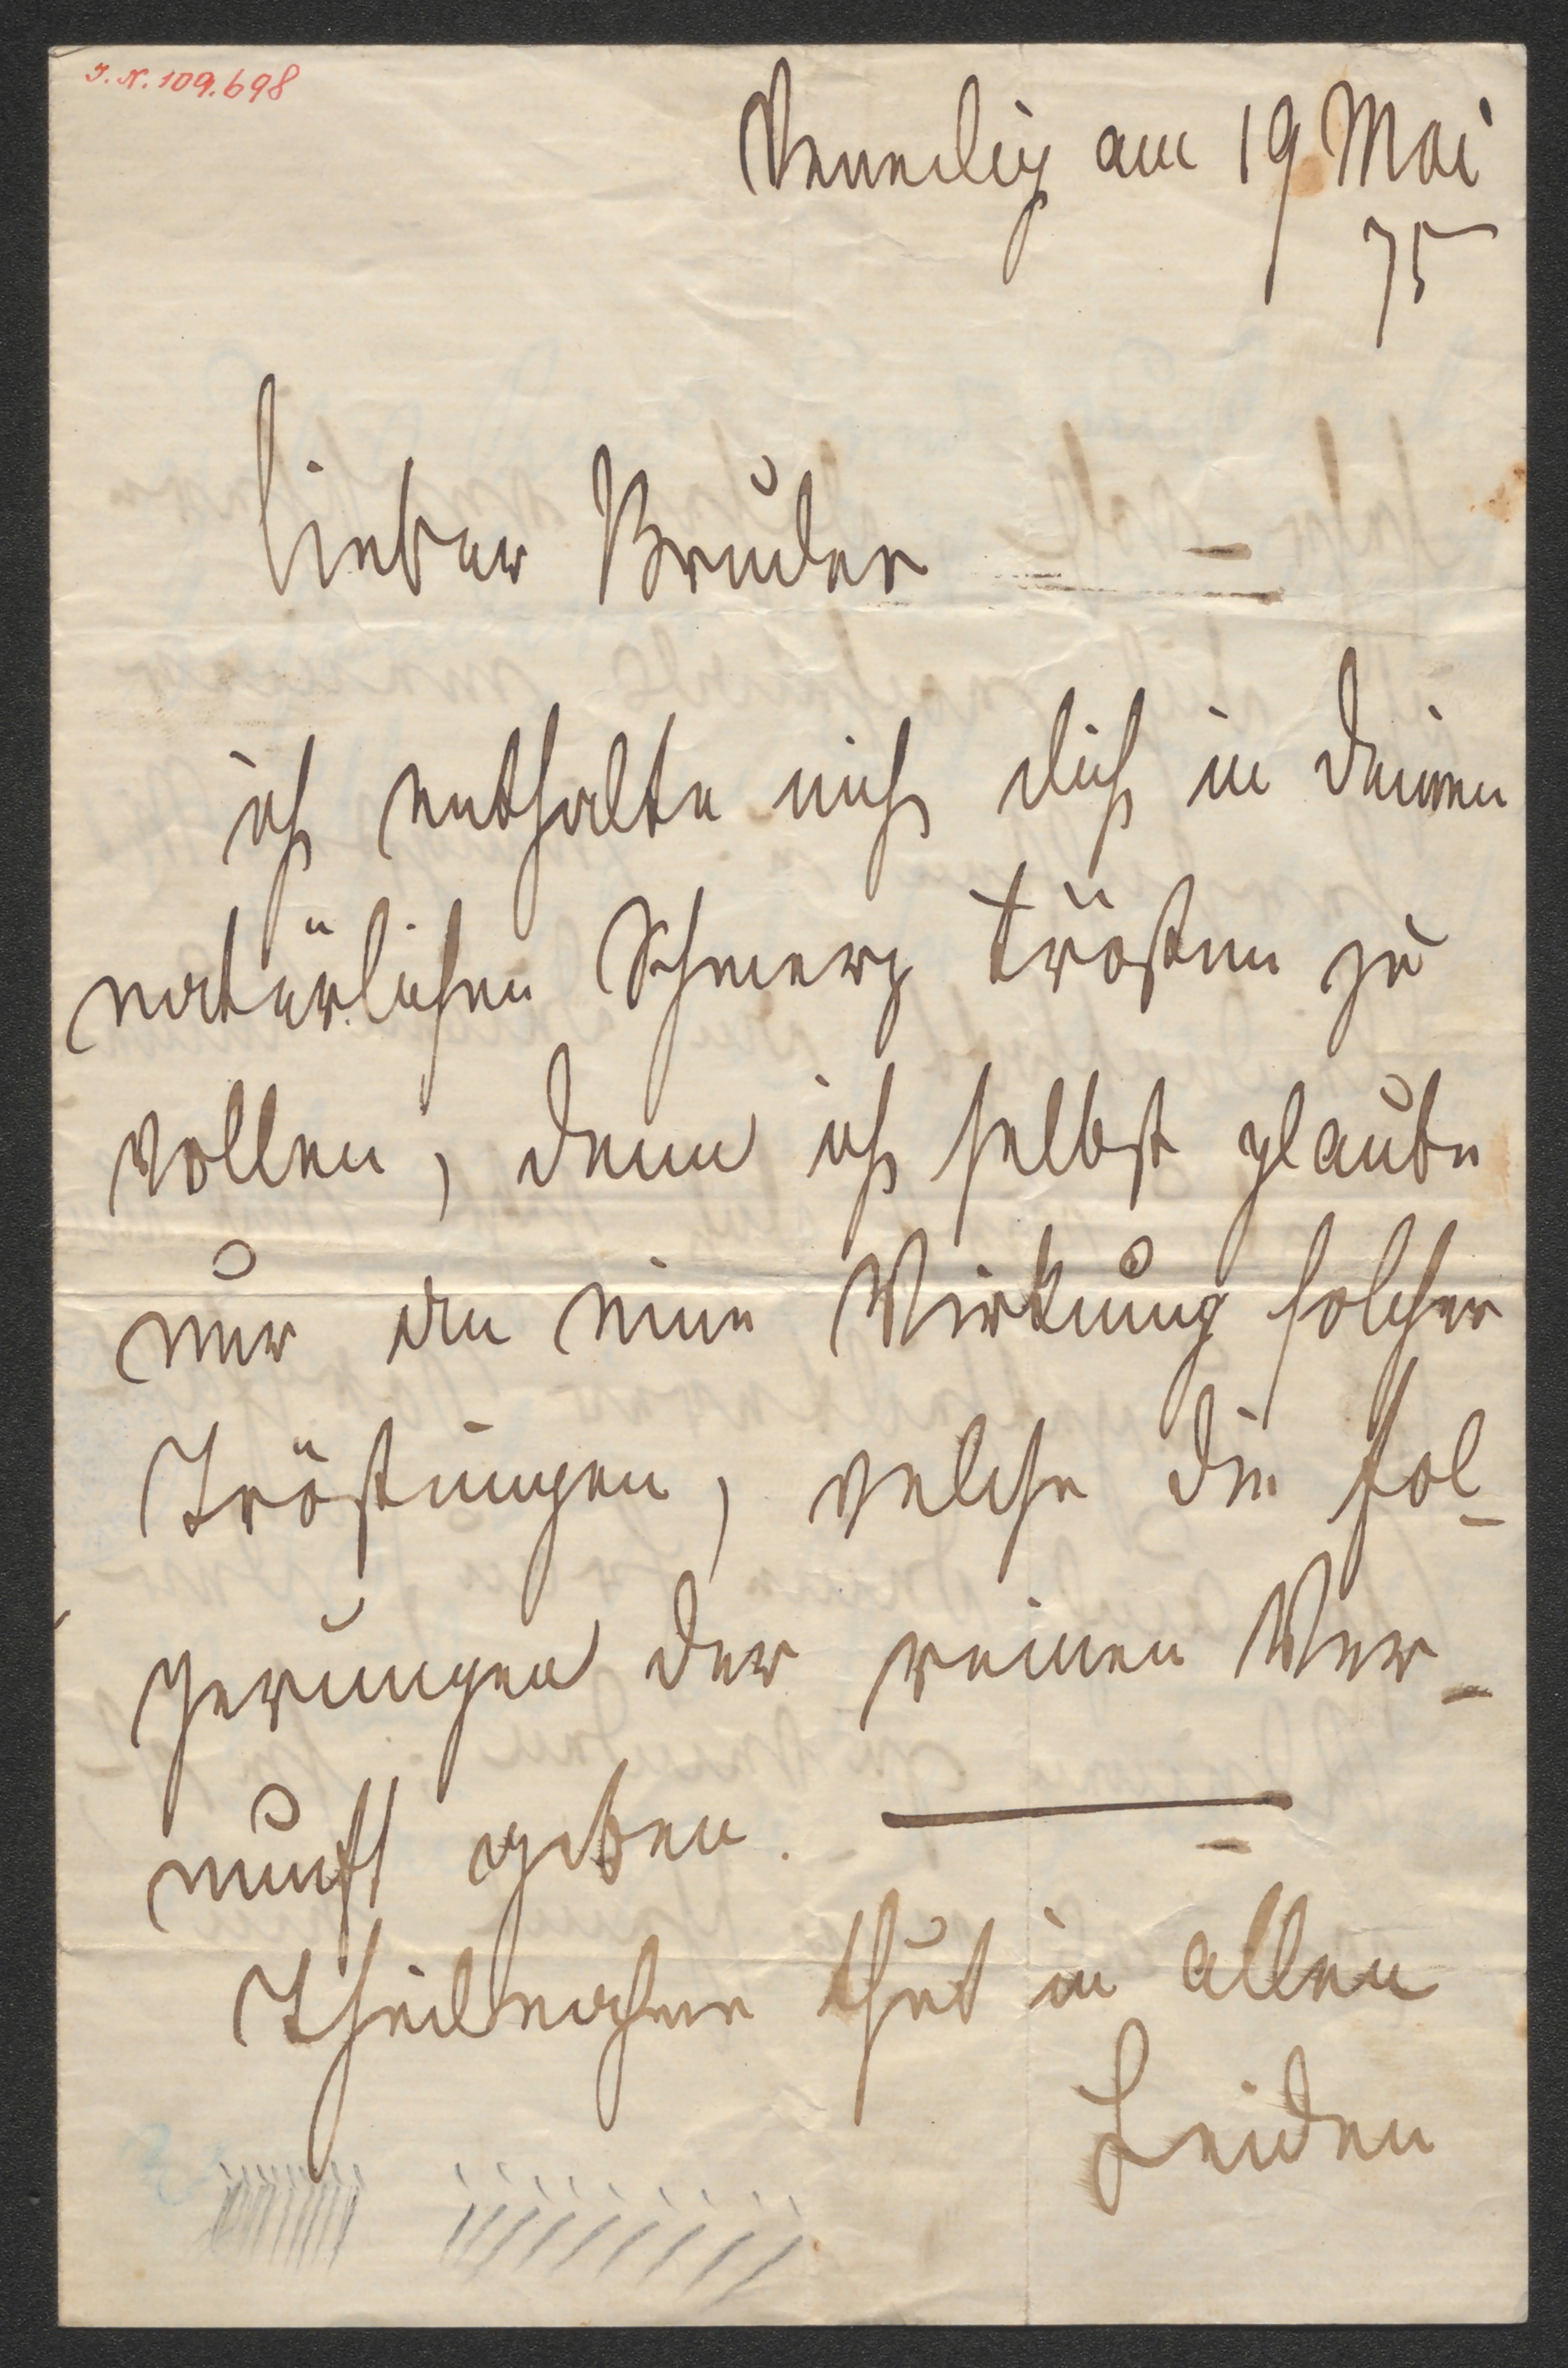 I. N. 109.698
Venedig am 19 Mai
75
Lieber Bruder
ich enthalte mich dich in deinen
natürlichen Schmerz trösten zu
wollen, denn ich selbst glaube
nur an eine Wirkung solcher
Tröstungen, welche die Fol-
gerungen der reinen Ver-
nunft geben.
Theilnahme thut in allen
Leiden